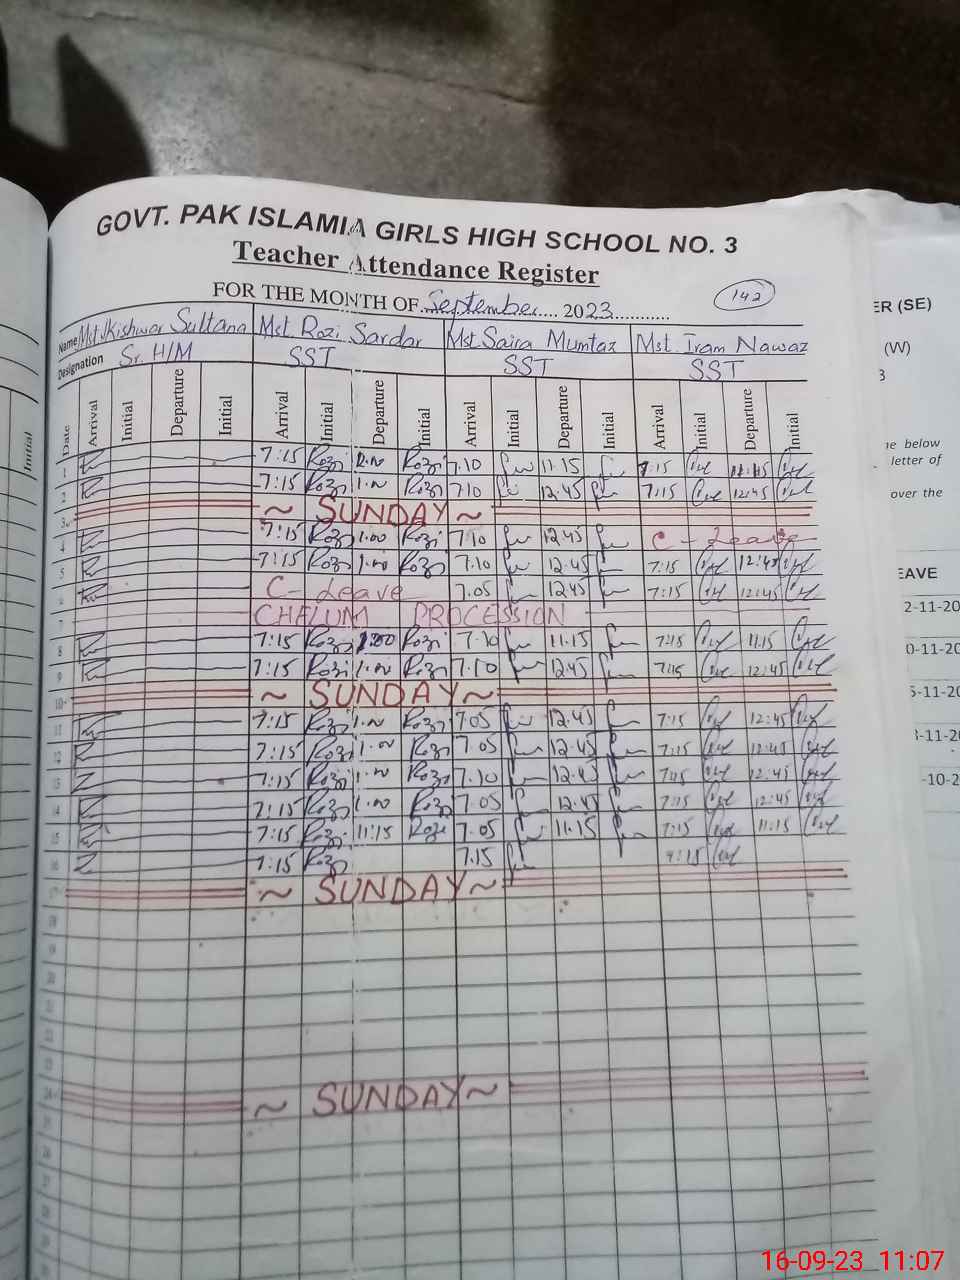 GOVT. PAK ISLAMIA GIRLS HIGH SCHOOL NO. 3
Teacher Attendance Register
FOR THE MONTH OF September 2023
142
Name Mst. Kishwar Sultana Mst. Rozi Sardar Mst. Saira Mumtaz Mst. Iram Nawaz
Designation Sr. H/M SST SST SST
Date Arrival Initial Departure Initial Arrival Initial Departure Initial Arrival Initial Departure Initial Arrival Initial Departure Initial
1 7:15 Rozi Rozi 7.10 11.15 7:15 11:15
2 7:15 Rozi 1.00 Rozi 7.10 12.45 7:15 12:45
3 ~ SUNDAY ~
4 7:15 Rozi 1.00 Rozi 7.10 12.45 C - Leave
5 7:15 Rozi 1.00 Rozi 7.10 12.45 7:15 12:45
6 C - Leave 7.05 12.45 7:15 12:45
7 CHELUM PROCESSION
8 7:15 Rozi Rozi 7.10 11.15 7:15 11.15
9 7:15 Rozi 1.00 Rozi 7.10 12.45 7:15 12:45
10 ~ SUNDAY ~
11 7:15 Rozi 1.00 Rozi 7.05 12.45 7:15 12:45
12 7:15 Rozi 1.00 Rozi 7.05 12.45 7:15 12:45
13 7:15 Rozi 1.00 Rozi 7.10 12.45 7:15 12:45
14 7:15 Rozi 1.00 Rozi 7.05 12.45 7:15 12:45
15 7:15 Rozi 11:15 Rozi 7.05 11.15 7:15 11:15
16 7:15 Rozi 7.15
17 ~ SUNDAY ~
18
19
20
21
22
23
24 ~ SUNDAY ~
25
26
27
28
ER (SE)
(W)
3
below
letter of
over the
EAVE
2-11-20
0-11-20
-11-20
-11-20
-10-2
Initial
16-09-23 11:07